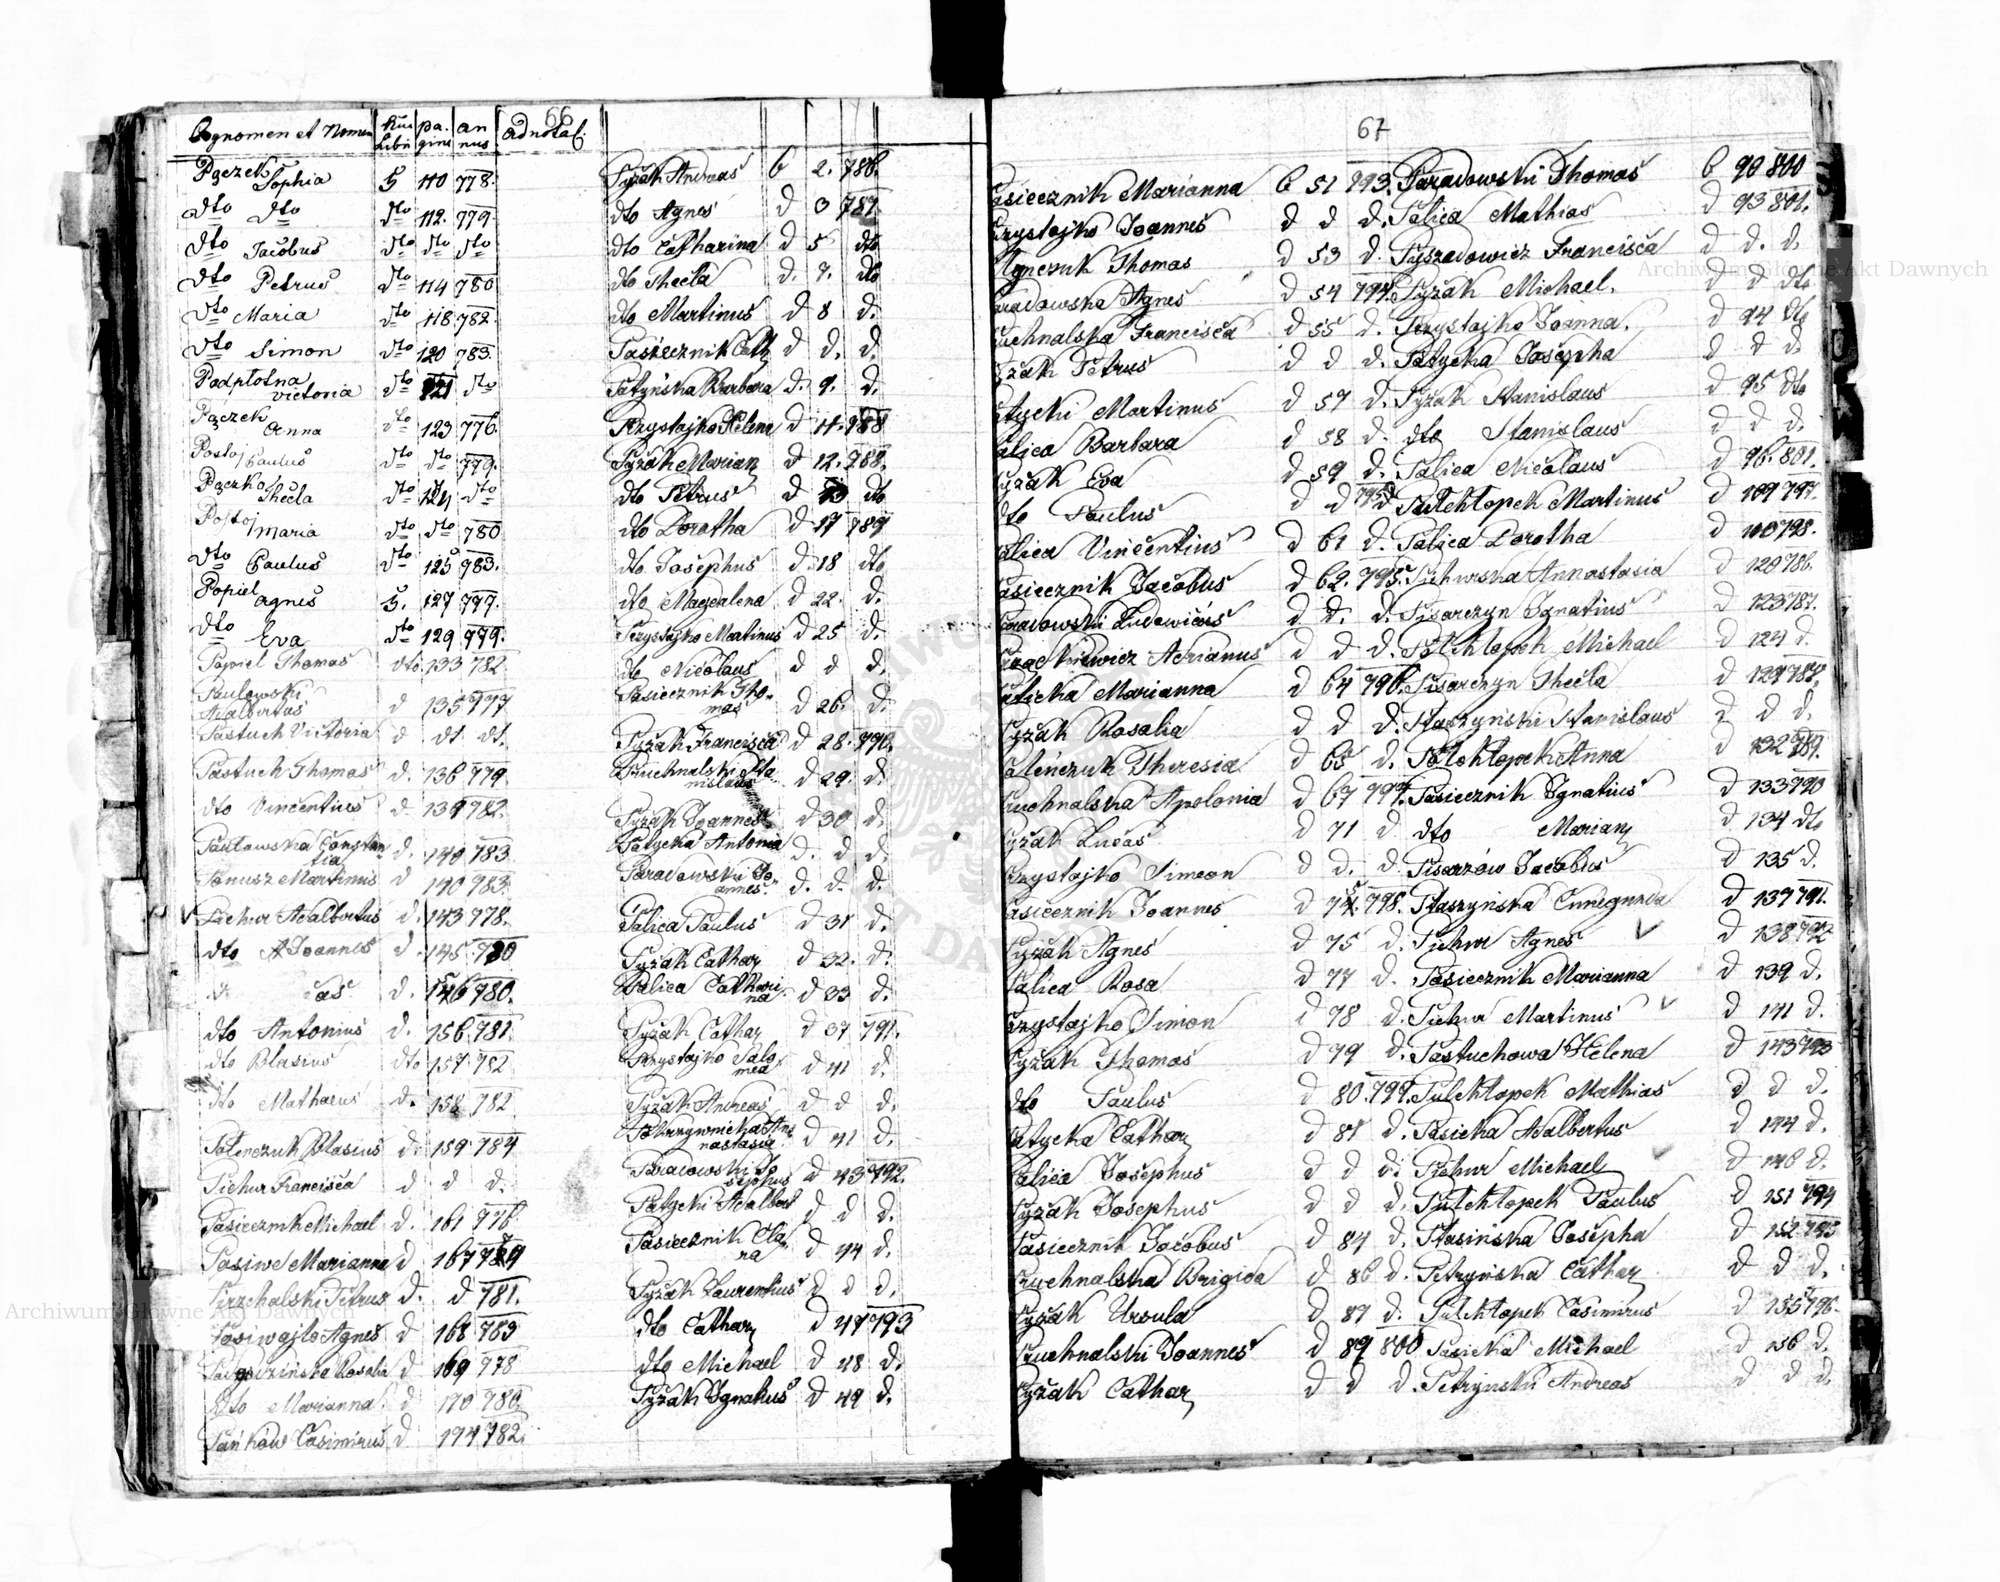 66
Cognomen et Nomen pagina annus adnotat.
Pączek Sophia 5 110 778.
dto dto dto 112. 779.
dto Jacobus dto dto dto
dto Petrus dto 114 780
dto Maria dto 118 782.
dto Simon dto 120 783.
Podpłotna victoria dto 121 dto
Pączek Anna dto 123 776.
Postoj Paulus dto dto 779.
Pączko Thecla dto 124 dto
Postoj Maria dto dto 780
dto Paulus dto 125 783.
Popiel Agnes 5. 127 777.
dto Eva dto 129 779.
Popiel Thomas dto 133 782.
Pawlowski Adalbertus d 135 777
Pastuch Victoria d dt. dt.
Pastuch Thomas d. 136 779.
dto Vincentius d 139 782.
Pawłowska Constantia d. 140 783
Panusz Martinus d 140 783.
Pichur Adalbertus d. 143 778.
dto Joannes d. 145 780
d. 146 780.
dto Antonius d. 156 781.
dto Blasius dto 157 782
dto Mathaeus d. 158 782
Palenczuk Blasius d. 159 784
Pichur Francisca d d d.
Pasiecznik Michael d. 161 776
Pasiwe Marianna d 167 784
Pirzchalski Petrus d. d 781.
Pasiwajlo Agnes d 168 783
Rosalia d 169 778
dto Marianna d 170 780.
Casimirus d 174 782.
Pyżak Andreas 6 2. 786.
dto Agnes d 3 787.
dto Catharina d 5 dto
dto Thecla d. 7. dto
dto Martinus d 8 d.
Pasiecznik Cath d d. d.
Patyńska Barbara d. 9. d.
Przystajko Helena d 11. 788
Pyżak Mariany d 12. 788.
dto Petrus d 13 dto
dto Dorotha d 17 789
dto Josephus d 18 dto
dto Magdalena d 22. d.
Przystajko Martinus d 25 d.
dto Nicolaus d d d.
Pasiecznik Thomas d 26. d.
Pyżak Francisca d 28. 790.
Puchnalski Stanislaus d 29. d.
Pyżak Joannes d 30 d.
Patycka Antonia d. d d.
Paradowski Joannes. d. d. d.
Palica Paulus d 31 d.
Pyżak Cathar d 32. d.
Palica Catharina d 33 d.
Pyżak Cathar d 37 791.
Przystajko Salomea d 41 d.
Pyżak Andreas d d d.
Pokrzywnicka Annastasia d 41 d.
Paradowski Josephus d 43 792.
Patycki Adalbert d d d.
Pasiecznik Clara d 44 d.
Pyżak Laurentius d d d.
dto Cathar d 47 793
dto Michael d 48 d.
Pyżak Ignatius d 49 d.
67
asiecznik Marianna 6 51 793.
rzystajko Joannes d d d.
Thomas d 53 d.
aradowska Agnes d 54 794.
uchnalska Francisca d 55 d.
yżak Petrus d d d.
atycki Martinus d 57 d.
alica Barbara d 58 d.
yżak Eva d 59 d.
dto Paulus d d 795 d
alica Vincentius d 61 d.
asiecznik Jacobus d 62. 795.
aradowski Ludovicus d d. d.
Adrianus d d d.
Marianna d 64 796.
yżak Rosalia d d d.
alenczuk Theresia d 65 d.
ruchnalska Apolonia d 67 797.
yżak Lucas d 71 d
rzystajko Simeon d d. d.
asiecznik Joannes d 74. 798.
yżak Agnes d 75 d.
alica Rosa d 77 d.
rzystajko Simon d 78 d.
yżak Thomas d 79 d.
dto Paulus d 80. 799.
atycka Cathar d 81 d.
alica Josephus d d d.
yżak Josephus d d d.
asiecznik Jacobus d 84 d.
ruchnalska Brigida d 86 d.
yżak Ursula d 87 d.
ruchnalski Joannes d 89 800
yżak Cathar d d d.
Paradowski Thomas 6 90 800
Palica Mathias d 93 801.
Pyszadowicz Francisca d d. d.
Pyżak Michael. d d dto
Przystajko Joanna. d 94 dto
Patycka Josepha d d d.
Pyżak Stanislaus d 95 dto
dto Stanislaus d d d.
Palica Nicolaus d 96. 801.
Pulchłopek Martinus d 109 797.
Palica Dorotha d 110 798.
Annastasia d 120 786.
Pisarczyn Ignatius d 123 787.
Pulchłopek Michael d 124 d.
Pisarczyn Thecla d 129 788.
Ptaszyński Stanislaus d d d.
Pulchłopek Anna d 132 789.
Pasiecznik Ignatius d 133 790
dto Mariany d 134 dto
Pisarzow Jacobus d 135 d.
Ptaszyńska Cunegunda d 137 791.
Pichur Agnes d 138 792
Pasiecznik Marianna d 139 d.
Pichur Martinus d 141 d.
Pastuchowa Helena d 143 793
Pulchłopek Mathias d d d.
Pasicka Adalbertus d 144 d.
Pichur Michael d 148 d.
Pulchłopek Paulus d 151 794
Ptasińska Josepha d 152 795
Petryńska Cathar d d d.
Pulchłopek Casimirus d 155 796.
Pasicka Michael d 156 d.
Petrynski Andreas d d d.
Archiwum Główne Akt Dawnych
Archiwum Główne Akt Dawnych